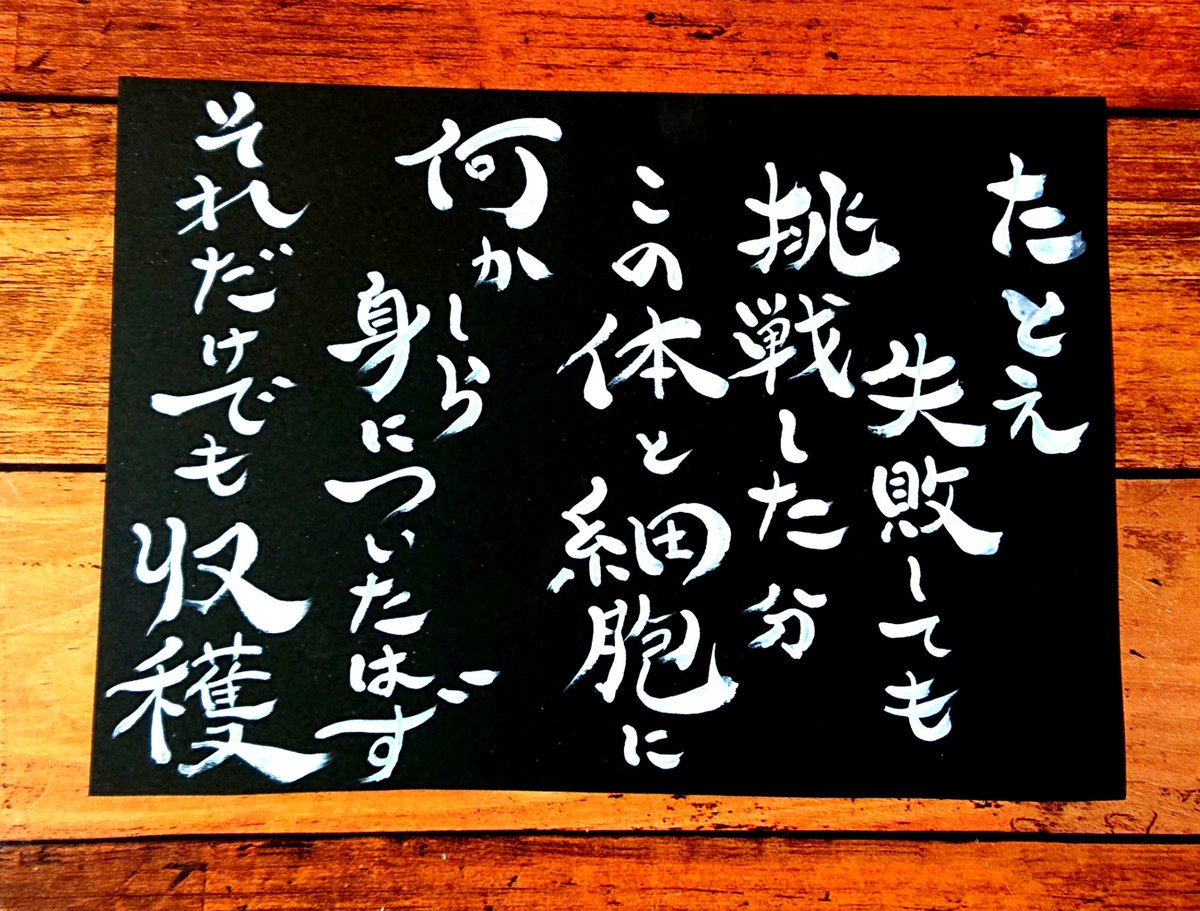 たとえ
失敗しても
挑戦した分
この体と細胞に
何かしら
身についたはず
それだけでも収穫